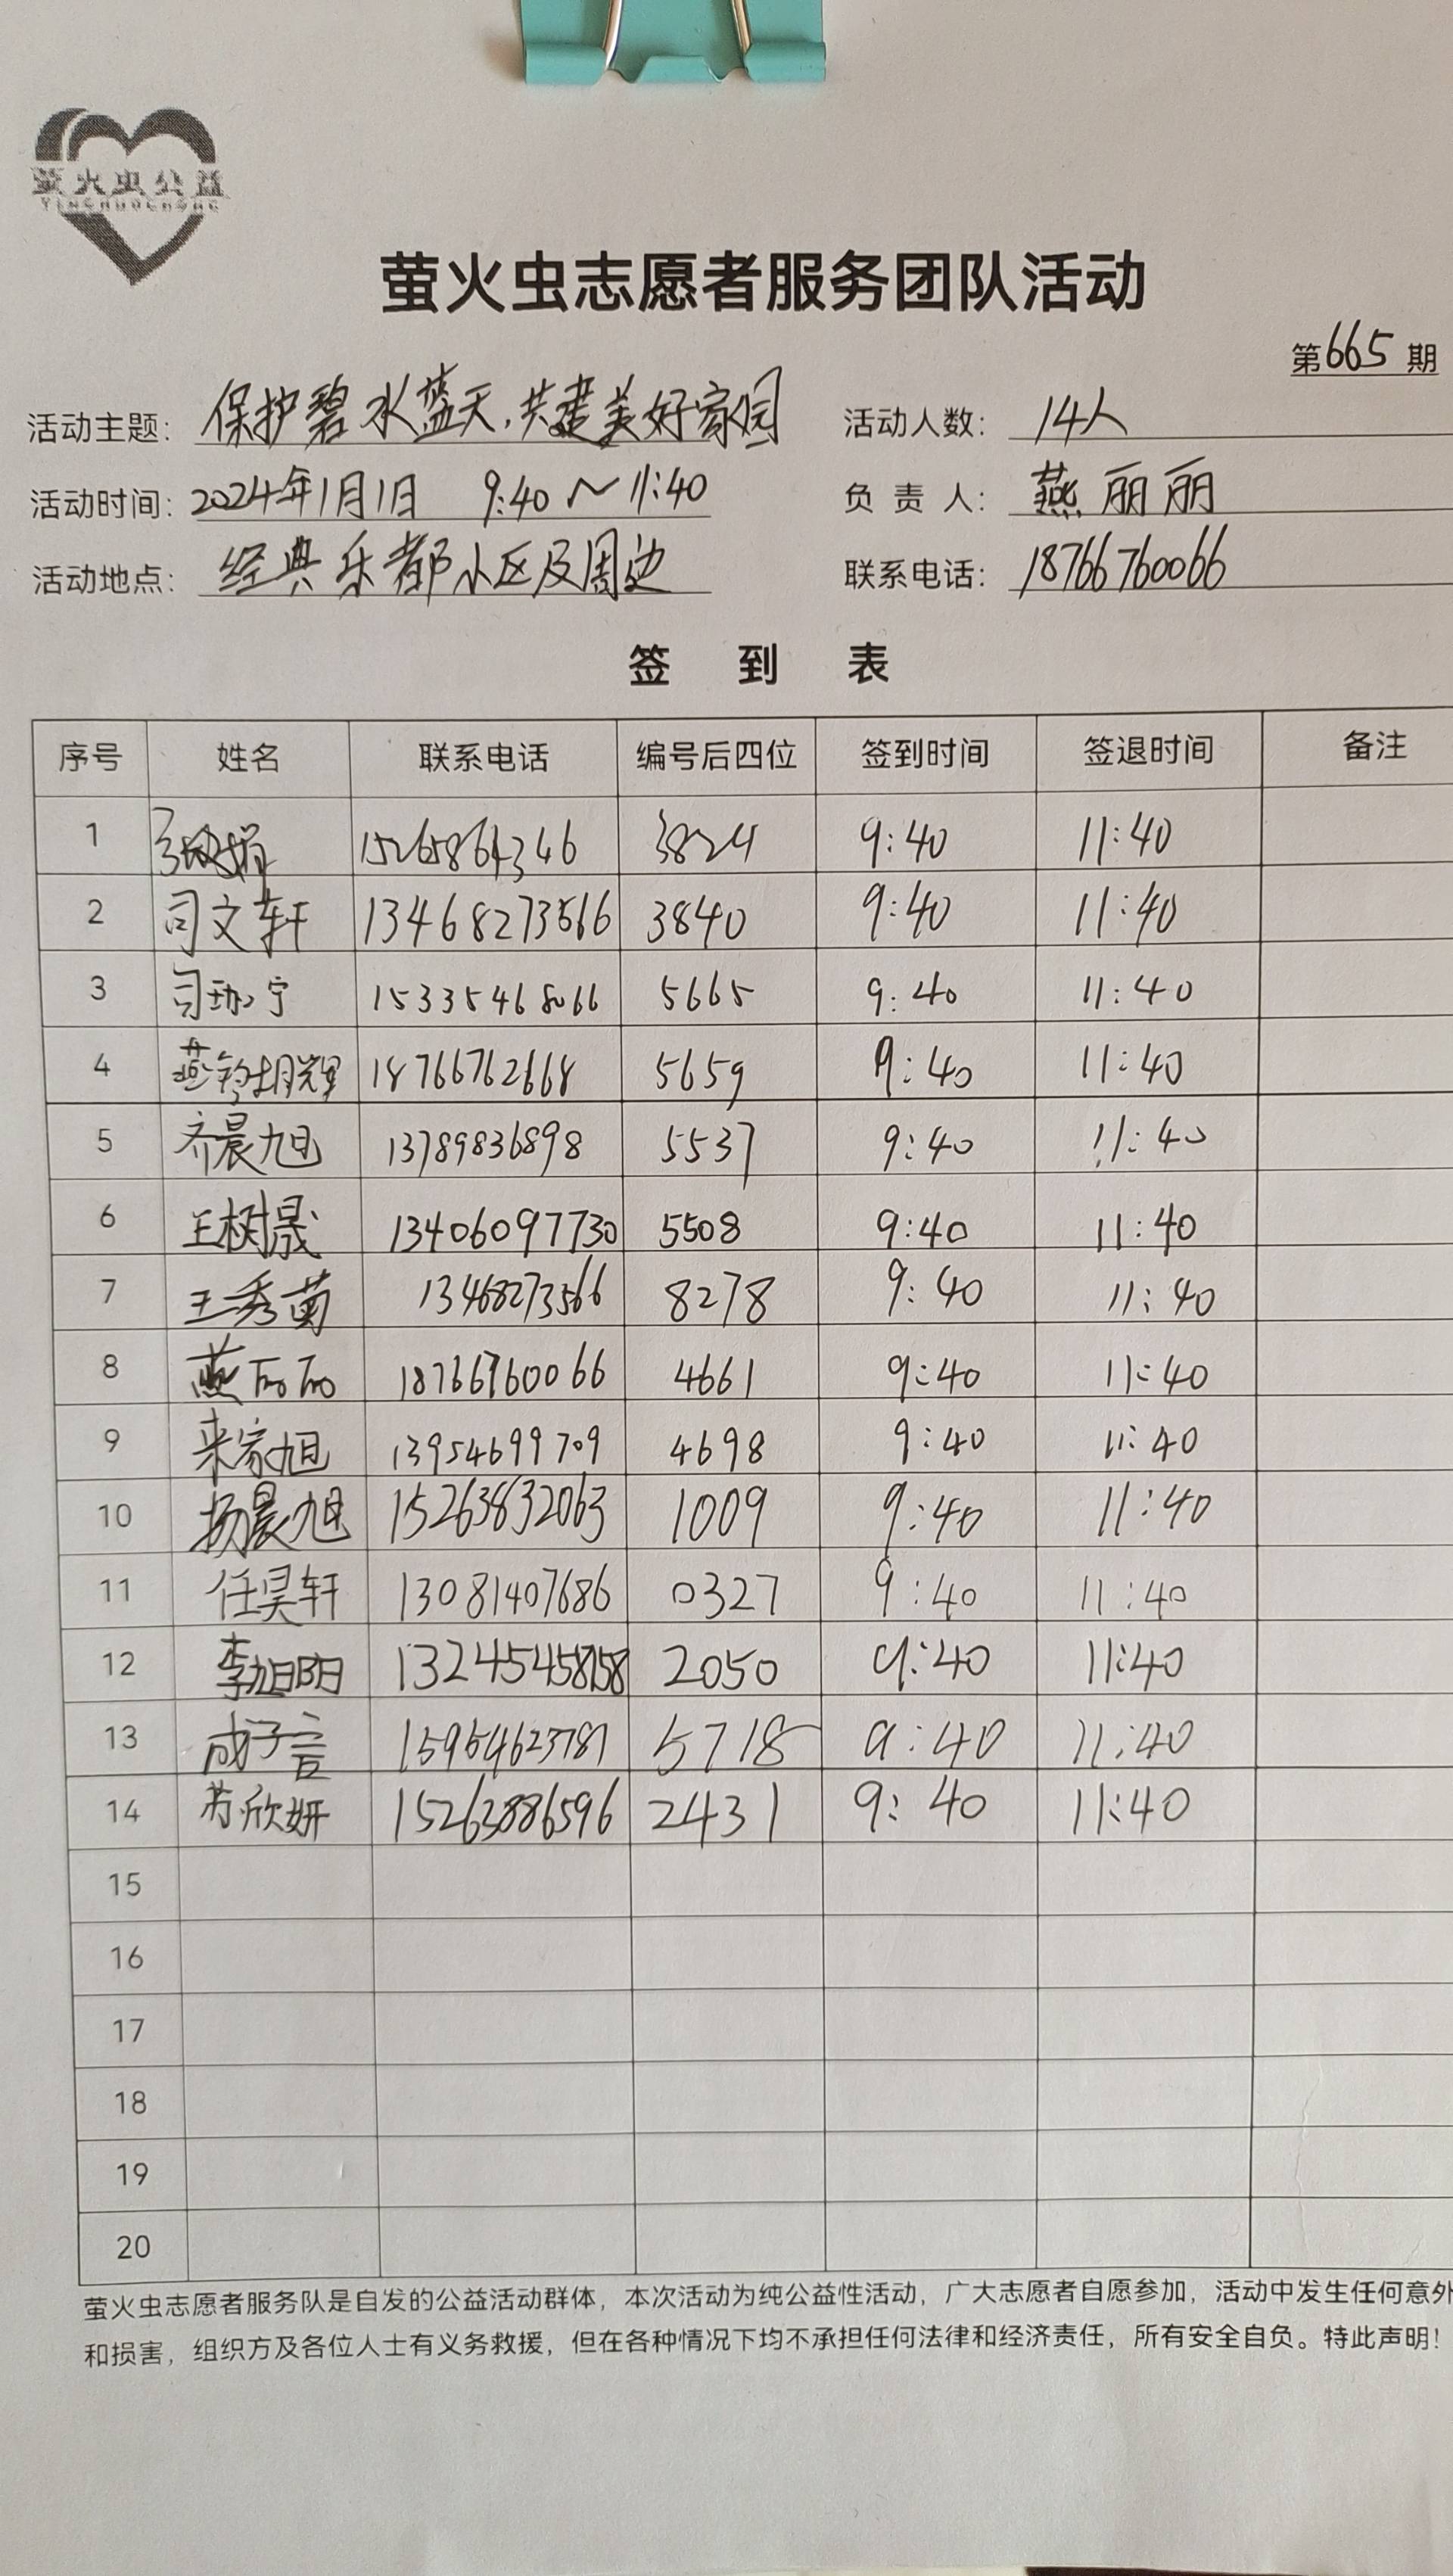 萤火虫公益
YINGHUOCHONG
萤火虫志愿者服务团队活动
第665期
活动主题：保护碧水蓝天，共建美好家园 活动人数：14人
活动时间：2024年1月1日 9:40～11:40 负责人：燕丽丽
活动地点：经典乐都小区及周边 联系电话：18766760066
签到表
序号 姓名 联系电话 编号后四位 签到时间 签退时间 备注
1 15265864346 3824 9:40 11:40
2 司文轩 13468273566 3840 9:40 11:40
3 司 宁 15335468066 5665 9:40 11:40
4 燕 辉 18766762668 5659 9:40 11:40
5 齐晨旭 13789836898 5537 9:40 11:40
6 王树晟 13406097730 5508 9:40 11:40
7 王秀菊 13468273566 8278 9:40 11:40
8 燕丽丽 18766760066 4661 9:40 11:40
9 来家旭 13954699709 4698 9:40 11:40
10 杨晨旭 15263832063 1009 9:40 11:40
11 任昊轩 13081407686 0327 9:40 11:40
12 李旭阳 2050 9:40 11:40
13 成子言 15954623781 5718 9:40 11:40
14 苏欣妍 15263886596 2431 9:40 11:40
15
16
17
18
19
20
萤火虫志愿者服务队是自发的公益活动群体，本次活动为纯公益性活动，广大志愿者自愿参加，活动中发生任何意外
和损害，组织方及各位人士有义务救援，但在各种情况下均不承担任何法律和经济责任，所有安全自负。特此声明！